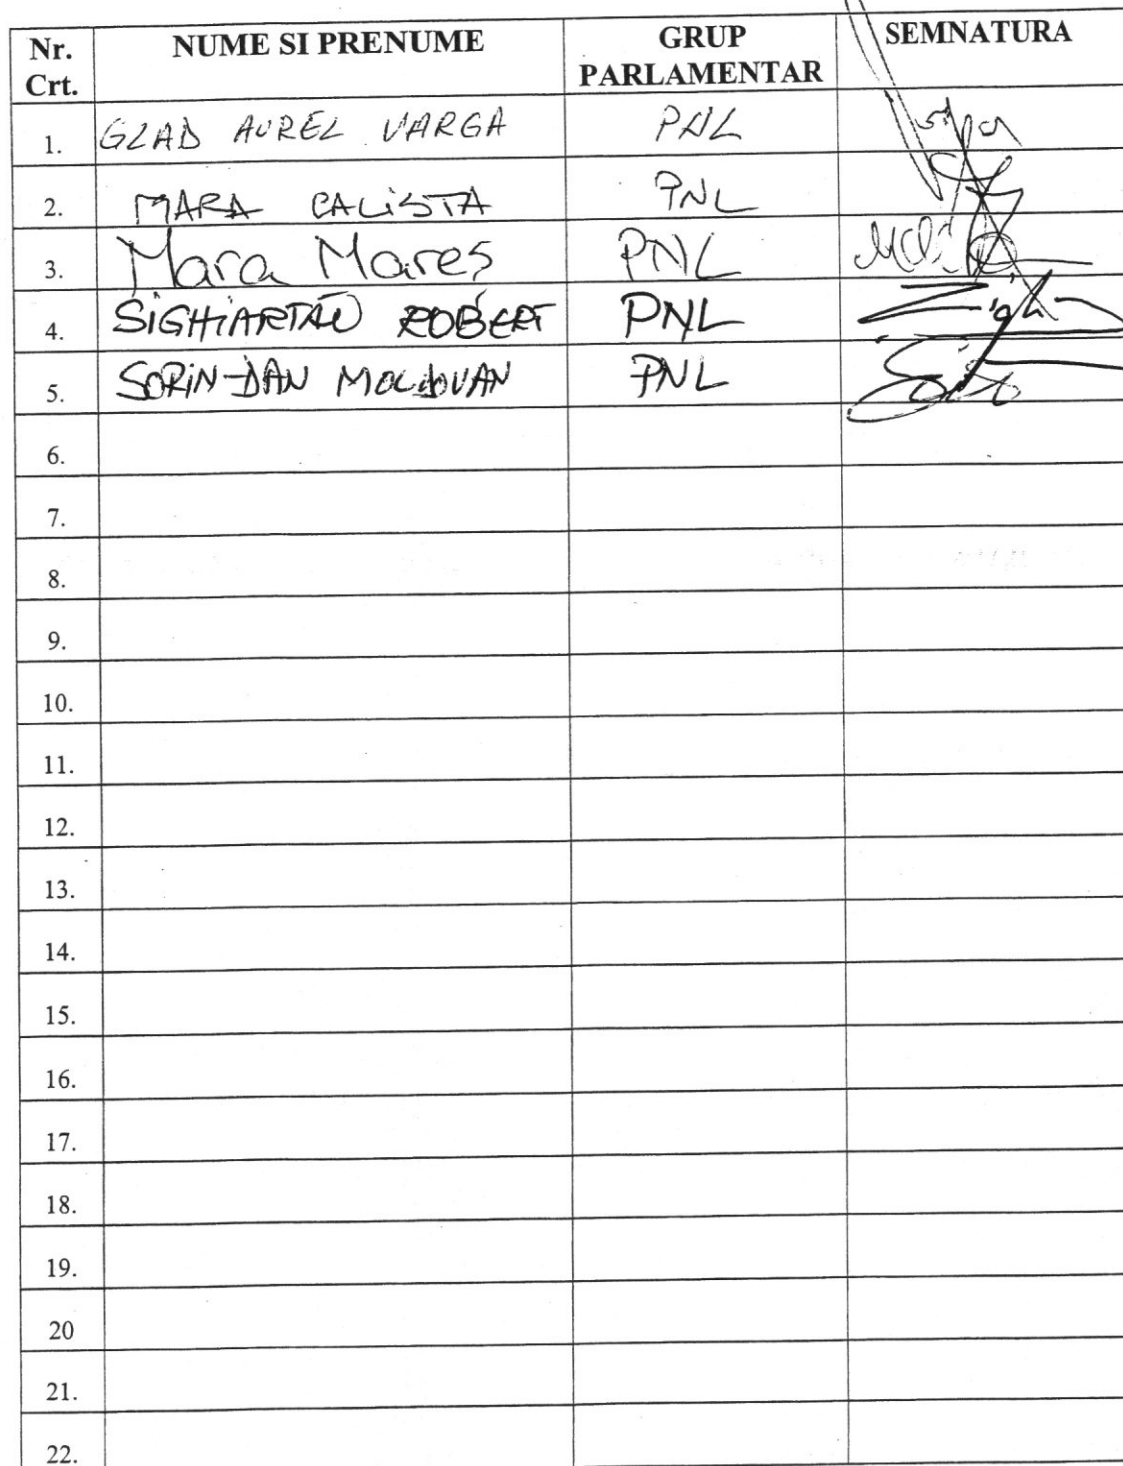 Nr. Crt. NUME SI PRENUME GRUP PARLAMENTAR SEMNATURA
1. GLAD AUREL VARGA PNL
2. MARA CALISTA PNL
3. Mara Mareș PNL
4. SIGHIARTĂU ROBERT PNL
5. SORIN-DAN MOLDOVAN PNL
6.
7.
8.
9.
10.
11.
12.
13.
14.
15.
16.
17.
18.
19.
20
21.
22.